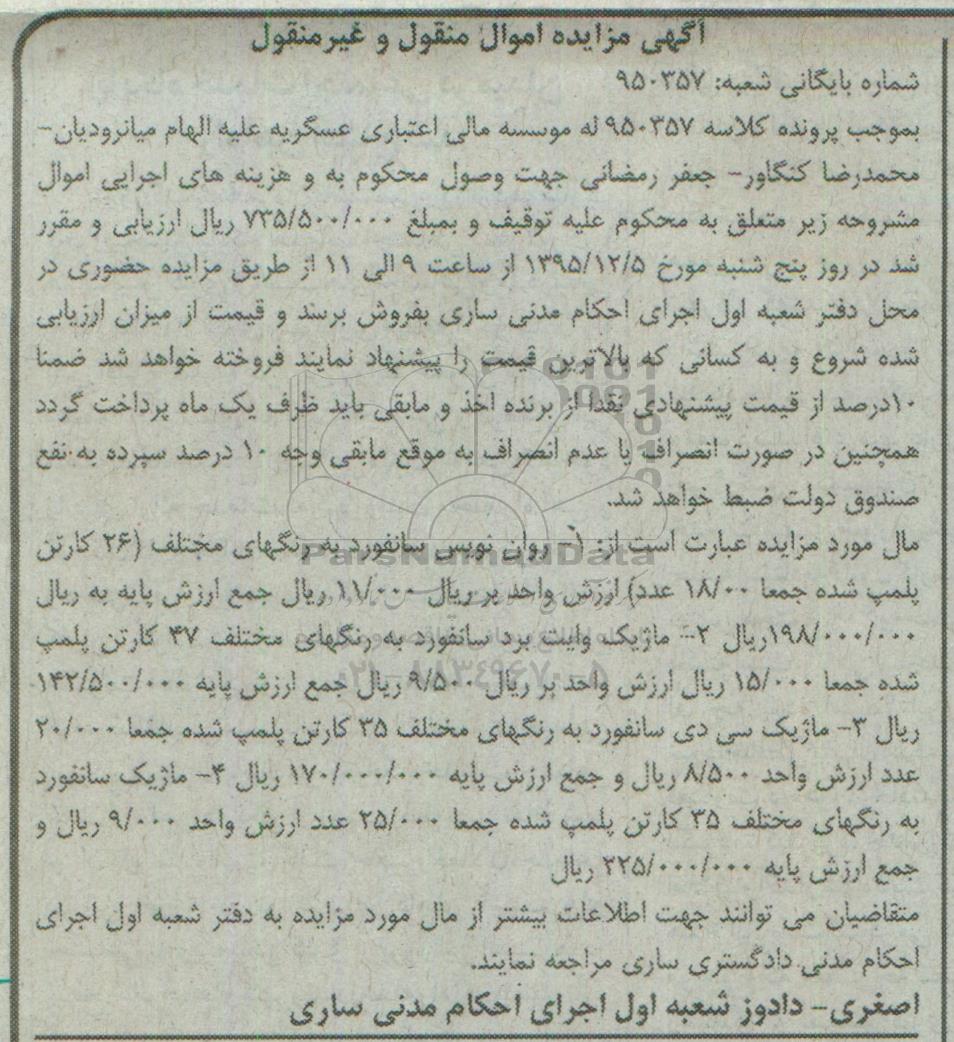 آگهی مزایده اموال منقول و غیرمنقول
شماره بایگانی شعبه: ۹۵۰۳۵۷
بموجب پرونده کلاسه ۹۵۰۳۵۷ له موسسه مالی اعتباری عسگریه علیه الهام میانرودیان-
محمدرضا کنگاور- جعفر رمضانی جهت وصول محکوم به و هزینه های اجرایی اموال
مشروحه زیر متعلق به محکوم علیه توقیف و بمبلغ ۷۳۵/۵۰۰/۰۰۰ ریال ارزیابی و مقرر
شد در روز پنج شنبه مورخ ۱۳۹۵/۱۲/۵ از ساعت ۹ الی ۱۱ از طریق مزایده حضوری در
محل دفتر شعبه اول اجرای احکام مدنی ساری بفروش برسد و قیمت از میزان ارزیابی
شده شروع و به کسانی که بالاترین قیمت را پیشنهاد نمایند فروخته خواهد شد ضمنا
۱۰درصد از قیمت پیشنهادی نقدا از برنده اخذ و مابقی باید ظرف یک ماه پرداخت گردد
همچنین در صورت انصراف یا عدم انصراف به موقع مابقی وجه ۱۰ درصد سپرده به نفع
صندوق دولت ضبط خواهد شد.
مال مورد مزایده عبارت است از: ۱- روان نویس سانفورد به رنگهای مختلف (۲۶ کارتن
پلمپ شده جمعا ۱۸/۰۰ عدد) ارزش واحد بر ریال ۱۱/۰۰۰ ریال جمع ارزش پایه به ریال
۱۹۸/۰۰۰/۰۰۰ریال ۲- ماژیک وایت برد سانفورد به رنگهای مختلف ۴۷ کارتن پلمپ
شده جمعا ۱۵/۰۰۰ ریال ارزش واحد بر ریال ۹/۵۰۰ ریال جمع ارزش پایه ۱۴۲/۵۰۰/۰۰۰
ریال ۳- ماژیک سی دی سانفورد به رنگهای مختلف ۳۵ کارتن پلمپ شده جمعا ۲۰/۰۰۰
عدد ارزش واحد ۸/۵۰۰ ریال و جمع ارزش پایه ۱۷۰/۰۰۰/۰۰۰ ریال ۴- ماژیک سانفورد
به رنگهای مختلف ۳۵ کارتن پلمپ شده جمعا ۲۵/۰۰۰ عدد ارزش واحد ۹/۰۰۰ ریال و
جمع ارزش پایه ۲۲۵/۰۰۰/۰۰۰ ریال
متقاضیان می توانند جهت اطلاعات بیشتر از مال مورد مزایده به دفتر شعبه اول اجرای
احکام مدنی دادگستری ساری مراجعه نمایند.
اصغری- دادوز شعبه اول اجرای احکام مدنی ساری
ParsNamadData
۰۲۱-۸۸۳۴۹۶۷۰-۵